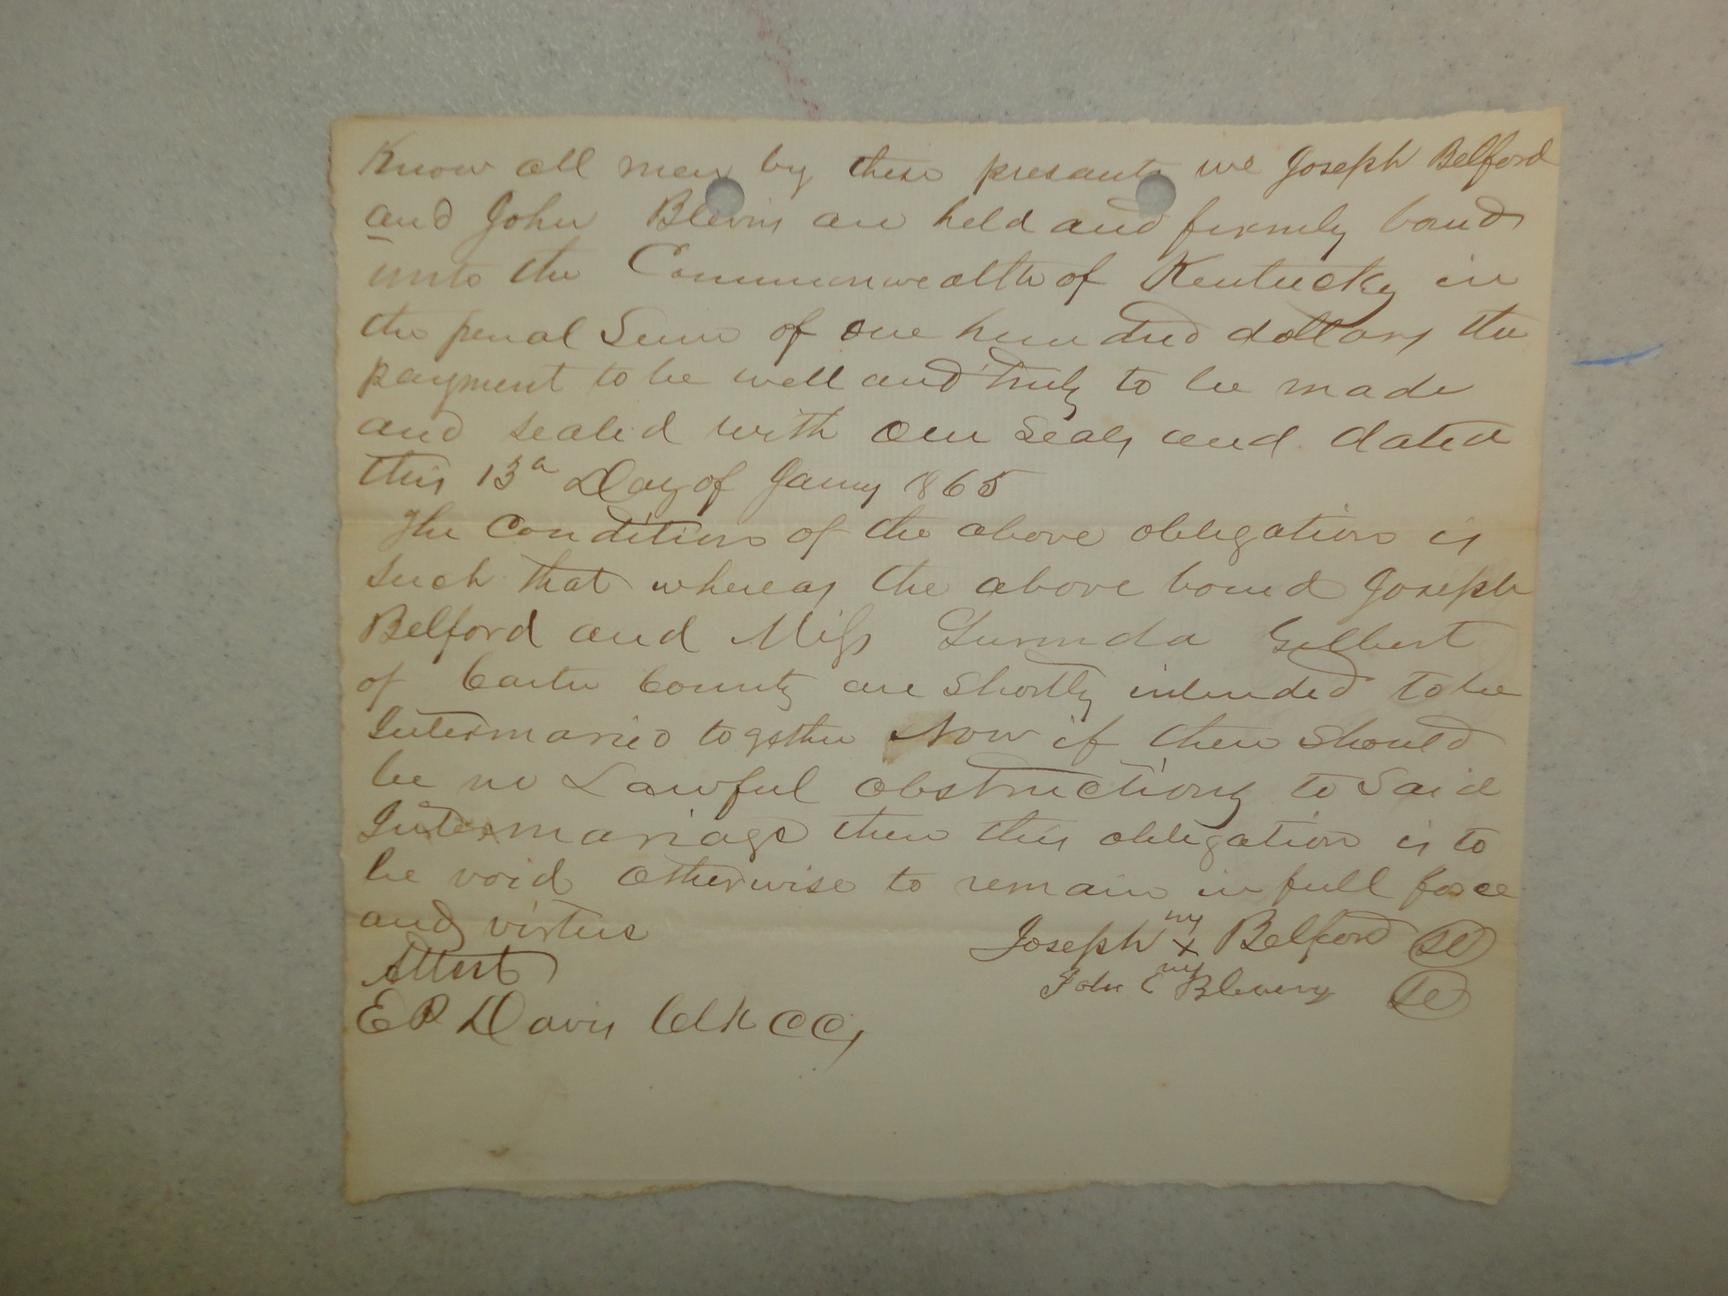 Know all men by these presants we Joseph Belford
and John Blevins are held and firmly bound
unto the Commonwealth of Kentucky in
the penal Sum of one hundred dollars the
payment to be well and truly to be made
and sealed with our seals and dated
this 13th Day of Jany 1865
The Condition of the above obligation is
such that whereas the above bound Joseph
Belford and Miss Lurinda Gilbert
of Carter County are shortly intended to be
Intermaried together Now if there should
be no Lawful obstructions to said
Intermariage then this obligation is to
be void otherwise to remain in full force
and virtue
Joseph my x Belford
Attest
John my Blevins
E P Davis Clk CC